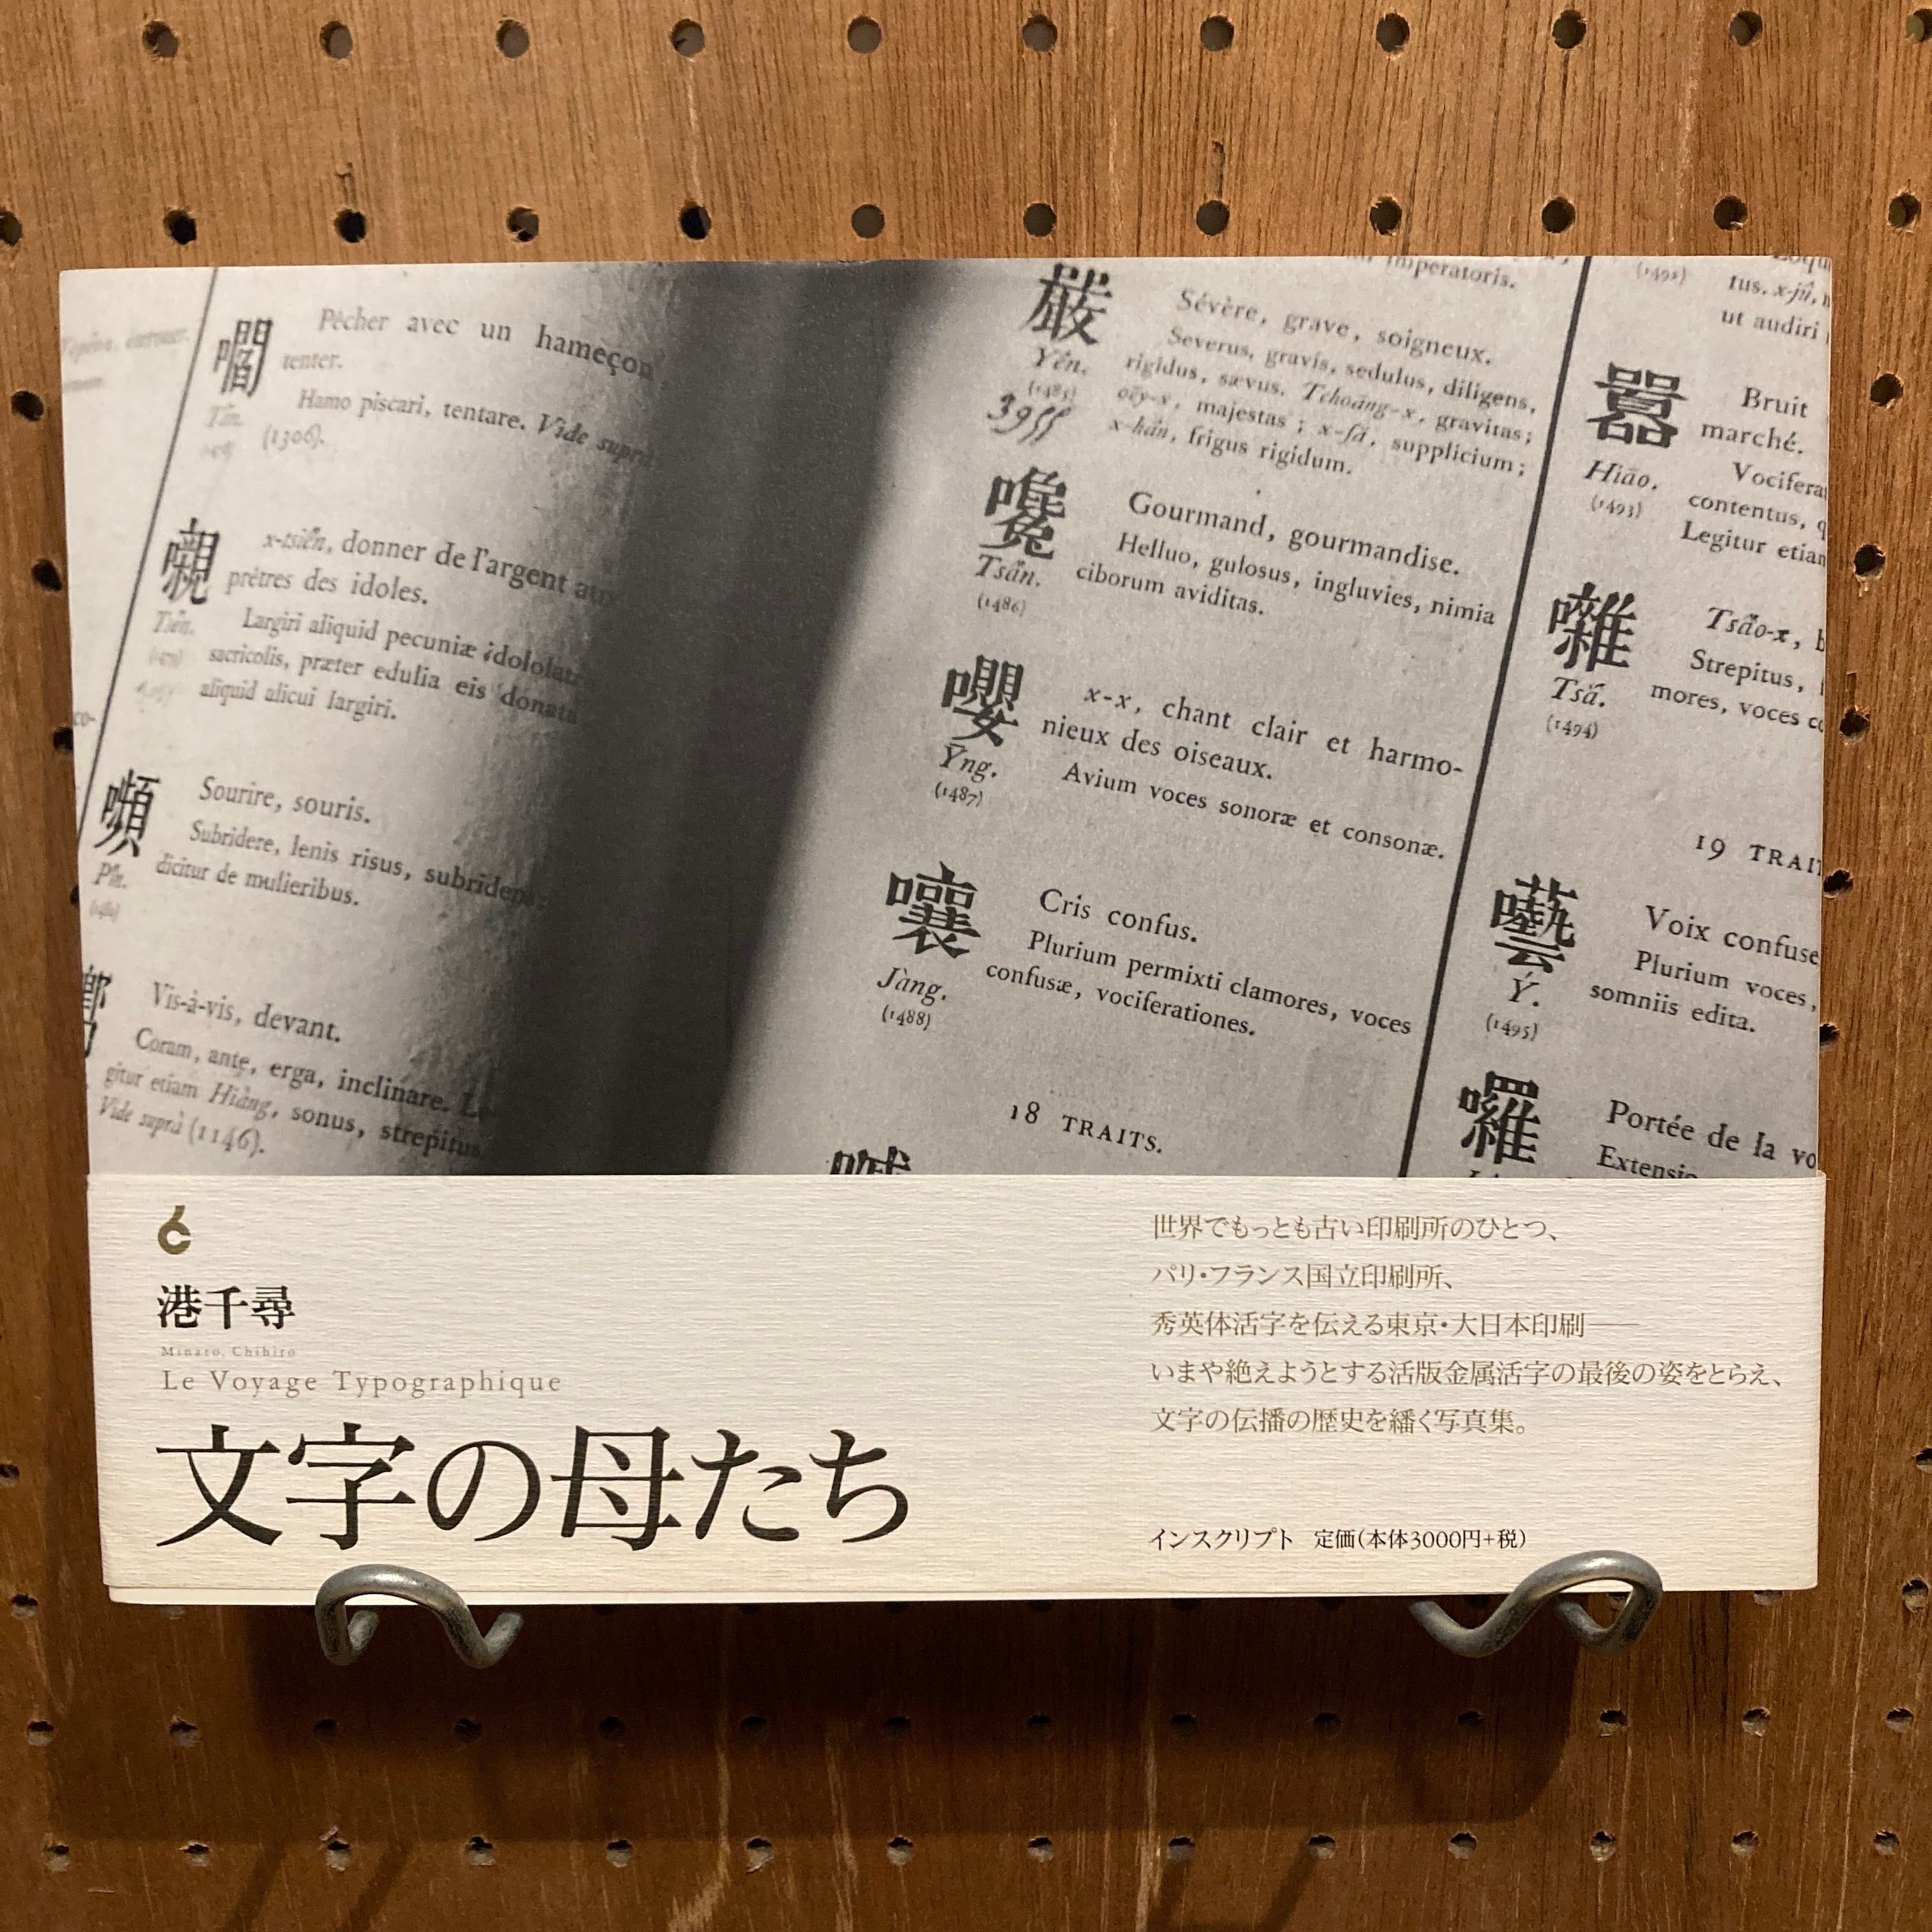 Pêcher avec un hameçon,
tenter.
Hamo piscari, tentare. Vide suprà
(1306).
嚫
x-tsién, donner de l'argent aux
prêtres des idoles.
Largiri aliquid pecuniæ idololatr
sacricolis, præter edulia eis donata
aliquid alicui largiri.
嚬
Sourire, souris.
Pîn.
Subridere, lenis risus, subridens
dicitur de mulieribus.
Vis-à-vis, devant.
Coram, ante, erga, inclinare. Le
gitur etiam Hiàng, sonus, strepitus
Vide suprà (1146).
imperatoris.
嚴
Sévère, grave, soigneux.
Yên.
Severus, gravis, sedulus, diligens,
(1485)
rigidus, sævus. Tchoāng-x, gravitas;
3955
oēy-x, majestas; x-fă, supplicium;
x-hân, frigus rigidum.
嚵
Gourmand, gourmandise.
Tsân.
Helluo, gulosus, ingluvies, nimia
(1486)
ciborum aviditas.
嚶
x-x, chant clair et harmo-
nieux des oiseaux.
Ȳng.
Avium voces sonoræ et consonæ.
(1487)
嚷
Cris confus.
Jàng.
Plurium permixti clamores, voces
(1488)
confusæ, vociferationes.
18 TRAITS.
(1492)
tus. x-jû,
ut audiri
囂
Bruit
marché.
Hiāo.
Vocifera
(1493)
contentus, q
Legitur etian
囃
Tsâo-x, b
Tsă.
Strepitus,
(1494)
mores, voces co
19 TRAIT
囈
Voix confuse
Ý.
Plurium voces,
(1495)
somniis edita.
囉
Portée de la vo
Extensio
港千尋
Minato, Chihiro
Le Voyage Typographique
文字の母たち
世界でもっとも古い印刷所のひとつ、
パリ・フランス国立印刷所、
秀英体活字を伝える東京・大日本印刷――
いまや絶えようとする活版金属活字の最後の姿をとらえ、
文字の伝播の歴史を繙く写真集。
インスクリプト 定価(本体3000円+税)